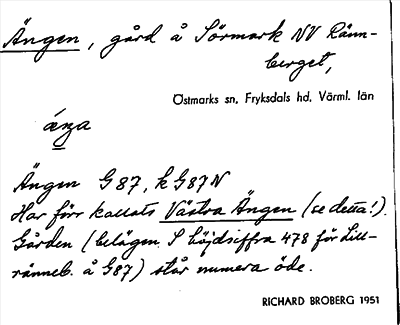 Ängen, gård å Sörmark NV Ränn-
berget,
Östmarks sn, Fryksdals hd, Värml. län
Ängen G87, k G87N
Har förr kallats Västra Ängen (se detta!).
Gården (belägen S höjdsiffra 478 för Lill-
ränneb. å G87) står numera öde.
RICHARD BROBERG 1951